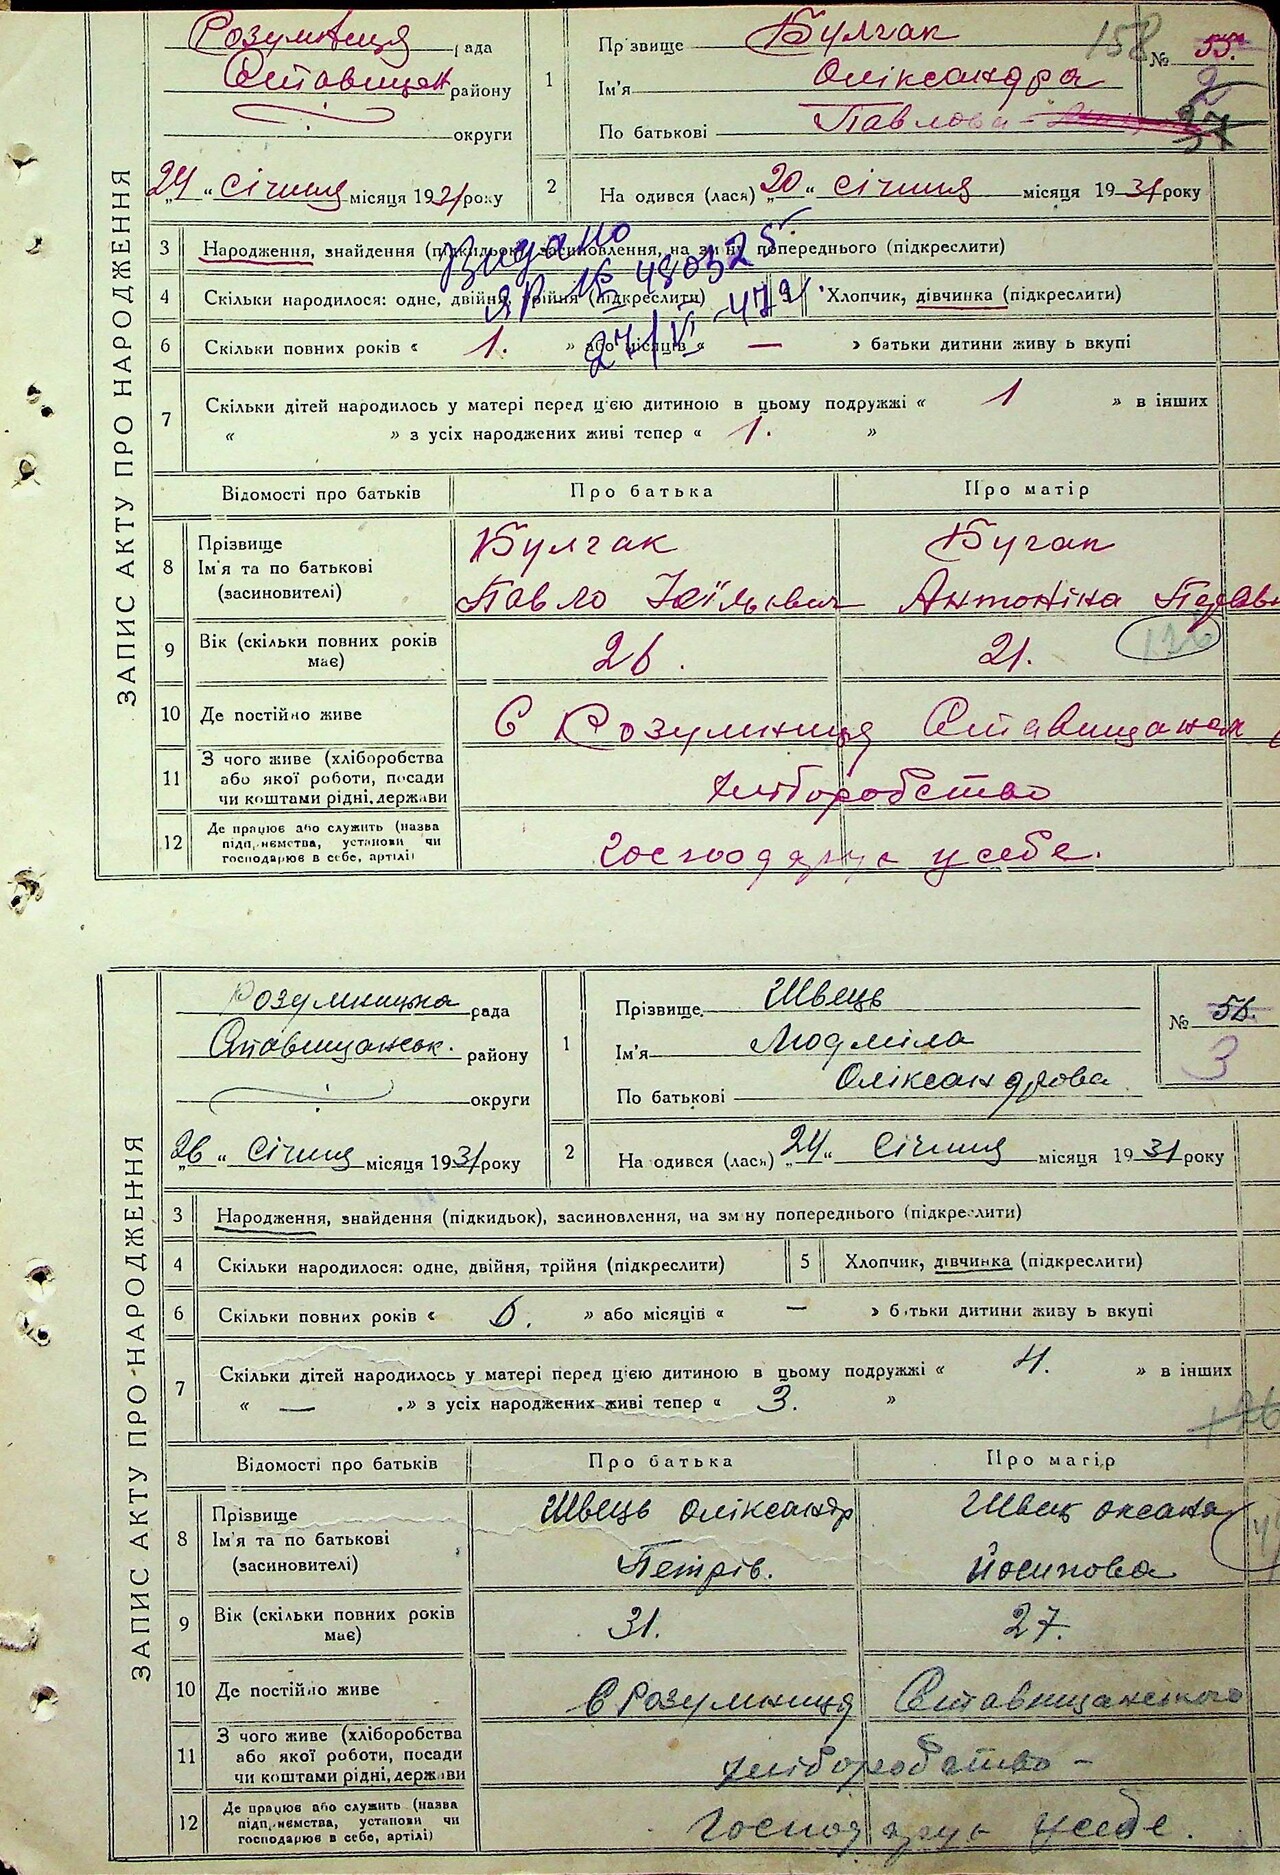 ЗАПИС АКТУ ПРО НАРОДЖЕННЯ
Розумниця рада
Ставищан району
округи
24 „ січня місяця 1931 року
1 Прізвище Булгак
Ім'я Оліксандра
По батькові Павлова
158 № 55.
2
37
2 На одився (лася) „20" січня місяця 1931 року
3 Народження, знайдення (підкидьок), засиновлення, на зм ну попереднього (підкреслити)
Видано
ЯР № 480325
27/VI - 47
4 Скільки народилося: одне, двійня, трійня (підкреслити) Хлопчик, дівчинка (підкреслити)
6 Скільки повних років « 1. » або місяців « — » батьки дитини живу ь вкупі
7 Скільки дітей народилось у матері перед цією дитиною в цьому подружжі « 1 » в інших
« » з усіх народжених живі тепер « 1. »
Відомості про батьків Про батька Про матір
8 Прізвище
Ім'я та по батькові
(засиновителі)
Булгак Бугак
Павло Антоніна
9 Вік (скільки повних років має) 26. 21. 126
10 Де постійно живе С Розумниця Ставищанск
11 З чого живе (хліборобства
або якої роботи, посади
чи коштами рідні, держави
хліборобство
12 Де працює або служить (назва
підп,иємства, установи чи
господарює в себе, артілі)
Господарує у себе.
ЗАПИС АКТУ ПРО НАРОДЖЕННЯ
Розумницька рада
Ставищанськ. району
округи
„26 „ січня місяця 1931 року
1 Прізвище Швець
Ім'я Людміла
По батькові Оліксандрова
№ 56.
3
2 На одився (лася) „24" січня місяця 1931 року
3 Народження, знайдення (підкидьок), засиновлення, на зм ну попереднього (підкреслити)
4 Скільки народилося: одне, двійня, трійня (підкреслити) 5 Хлопчик, дівчинка (підкреслити)
6 Скільки повних років « 6. » або місяців « — » б тьки дитини живу ь вкупі
7 Скільки дітей народилось у матері перед цією дитиною в цьому подружжі « 4. » в інших
« — » з усіх народжених живі тепер « 3. »
Відомості про батьків Про батька Про матір
8 Прізвище
Ім'я та по батькові
(засиновителі)
Швець Оліксандр Швец Оксана
Петрів. Йосипова
9 Вік (скільки повних років має) 31. 27.
10 Де постійно живе С Розумниця Ставищанського
11 З чого живе (хліборобства
або якої роботи, посади
чи коштами рідні, держави
хліборобство –
12 Де працює або служить (назва
підп,иємства, установи чи
господарює в себе, артілі)
Господарує у себе.